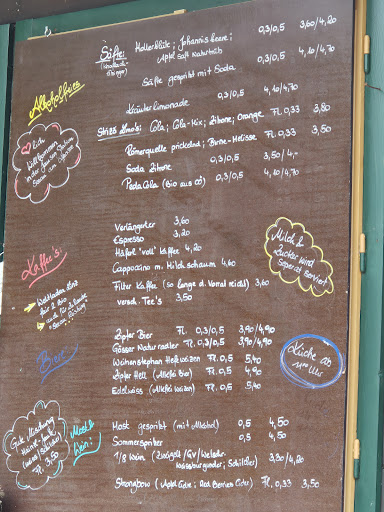 Säfte: Hollerblüte; Johannisbeere; 0,3/0,5 3,60/4,20
Apfel Saft Naturtrüb 0,3/0,5 4,10/4,70
Säfte gespritzt mit Soda
Alkoholfreies
Kräuterlimonade 0,3/0,5 4,10/4,70
Cola; Cola-Mix; Zitrone; Orange Fl. 0,33 3,50
Römerquelle prickelnd; Birne-Melisse Fl. 0,33 3,50
Soda Zitrone 0,3/0,5 3,50/4,-
Pedacola (Bio aus OÖ) 0,3/0,5 4,10/4,70
Willkommen
Kaffee's:
Verlängerter 3,60
Espresso 3,20
Häferl "voll" Kaffee 4,20
Cappuccino m. Milchschaum 4,60
Filter Kaffee (so lange d. Vorrat reicht) 3,60
versch. Tee's 3,50
Milch &
Zucker wird
seperat serviert
Bier:
Zipfer Bier Fl. 0,3/0,5 3,90/4,90
Gösser Natur radler Fl. 0,3/0,5 3,90/4,90
Weihenstephan Hefeweizen Fl. 0,5 5,40
Zipfer Hell (Alkfrei Bier) Fl. 0,5 4,90
Edelweiss (Alkfrei Weizen) Fl. 0,5 5,40
Küche ab
Most &
Wein:
Gute Mischung
Fl. 3,50
Most gespritzt (mit Alkohol) 0,5 4,50
Sommerspritzer 0,5 4,50
1/8 Wein (Zweigelt/GV/Welsch-
Weissburgunder; Schilcher) 3,30/4,20
Strongbow (Apfel Cider; Red Berries Cider) Fl. 0,33 3,50